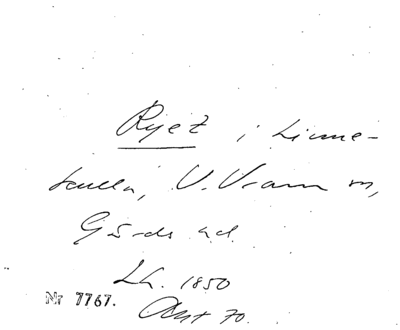 Ryet i Linne-
kulla, V. Vram sn,
Gärds hd.
Lh. 1850
Nr 7767.
Ant 70.